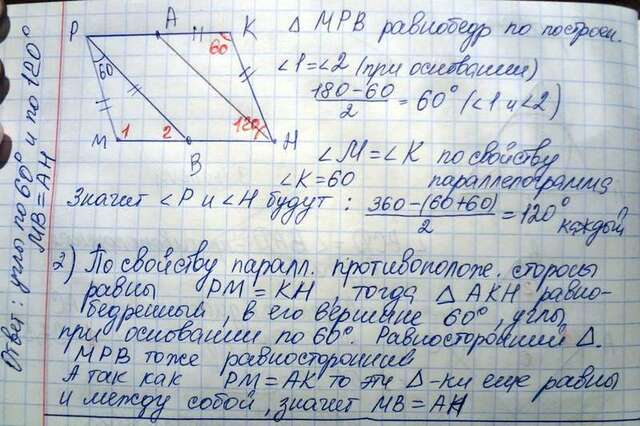 P A K
60
60
1 2 120
M B H
Δ MPB равнобедр по построен.
∠1=∠2 (при основании)
180-60
2
= 60° (∠1 и ∠2)
∠M=∠K по свойству
∠K=60 параллелограмма
Значит ∠P и ∠H будут :
360-(60+60)
2
=120° каждый
2) По свойству паралл. противополож. стороны
равны PM=KH, тогда Δ AKH равно-
бедренный, в его вершине 60°, углы
при основании по 60°. Равносторонний Δ.
MPB тоже равносторонний
А так как PM=AK то эти Δ-ки еще равны
и между собой, значит MB=AH
Ответ: углы по 60° и по 120°
MB=AH